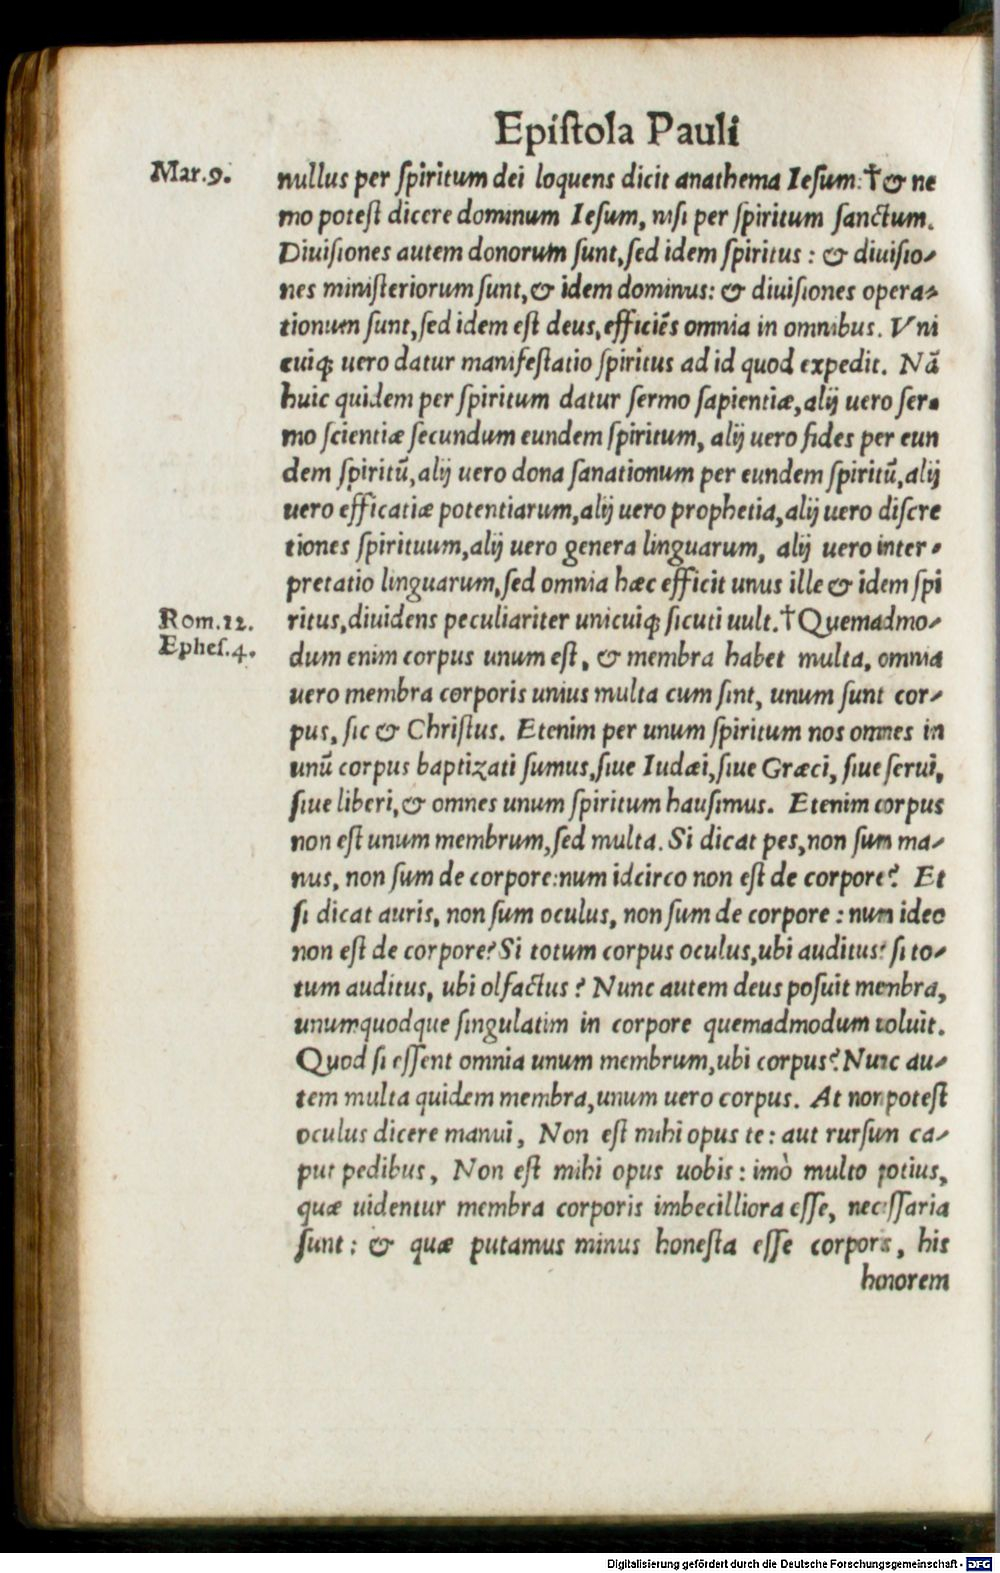 Epiſtola Pauli
Mar.9.
nullus per ſpiritum dei loquens dicit anathema Ieſum:†& ne
mo poteſt dicere dominum Ieſum, niſi per ſpiritum ſanctum.
Diuiſiones autem donorum ſunt,ſed idem ſpiritus : & diuiſio-
nes miniſteriorum ſunt,& idem dominus: & diuiſiones opera-
tionum ſunt,ſed idem eſt deus,efficiẽs omnia in omnibus. Vni
cuiq; uero datur manifeſtatio ſpiritus ad id quod expedit. Nã
huic quidem per ſpiritum datur ſermo ſapientiæ,alij uero ſer-
mo ſcientiæ ſecundum eundem ſpiritum, alij uero fides per eun
dem ſpiritũ,alij uero dona ſanationum per eundem ſpiritũ,alij
uero efficatiæ potentiarum,alij uero prophetia,alij uero diſcre
tiones ſpirituum,alij uero genera linguarum, alij uero inter-
pretatio linguarum,ſed omnia hæc efficit unus ille & idem ſpi
Rom.12.
ritus,diuidens peculiariter unicuiq; ſicuti uult.†Quemadmo-
Epheſ.4.
dum enim corpus unum eſt, & membra habet multa, omnia
uero membra corporis unius multa cum ſint, unum ſunt cor-
pus, ſic & Chriſtus. Etenim per unum ſpiritum nos omnes in
unũ corpus baptizati ſumus,ſiue Iudæi,ſiue Græci, ſiue ſerui,
ſiue liberi,& omnes unum ſpiritum hauſimus. Etenim corpus
non eſt unum membrum,ſed multa. Si dicat pes,non ſum ma-
nus, non ſum de corpore:num idcirco non eſt de corpore? Et
ſi dicat auris, non ſum oculus, non ſum de corpore : num ideo
non eſt de corpore? Si totum corpus oculus,ubi auditus? ſi to-
tum auditus, ubi olfactus? Nunc autem deus poſuit membra,
unumquodque ſingulatim in corpore quemadmodum uoluit.
Quod ſi eſſent omnia unum membrum,ubi corpus? Nunc au-
tem multa quidem membra,unum uero corpus. At non poteſt
oculus dicere manui, Non eſt mihi opus te: aut rurſum ca-
put pedibus, Non eſt mihi opus uobis: imò multo potius,
quæ uidentur membra corporis imbecilliora eſſe, neceſſaria
ſunt: & quæ putamus minus honeſta eſſe corporis, his
honorem
Digitalisierung gefördert durch die Deutsche Forschungsgemeinschaft - DFG